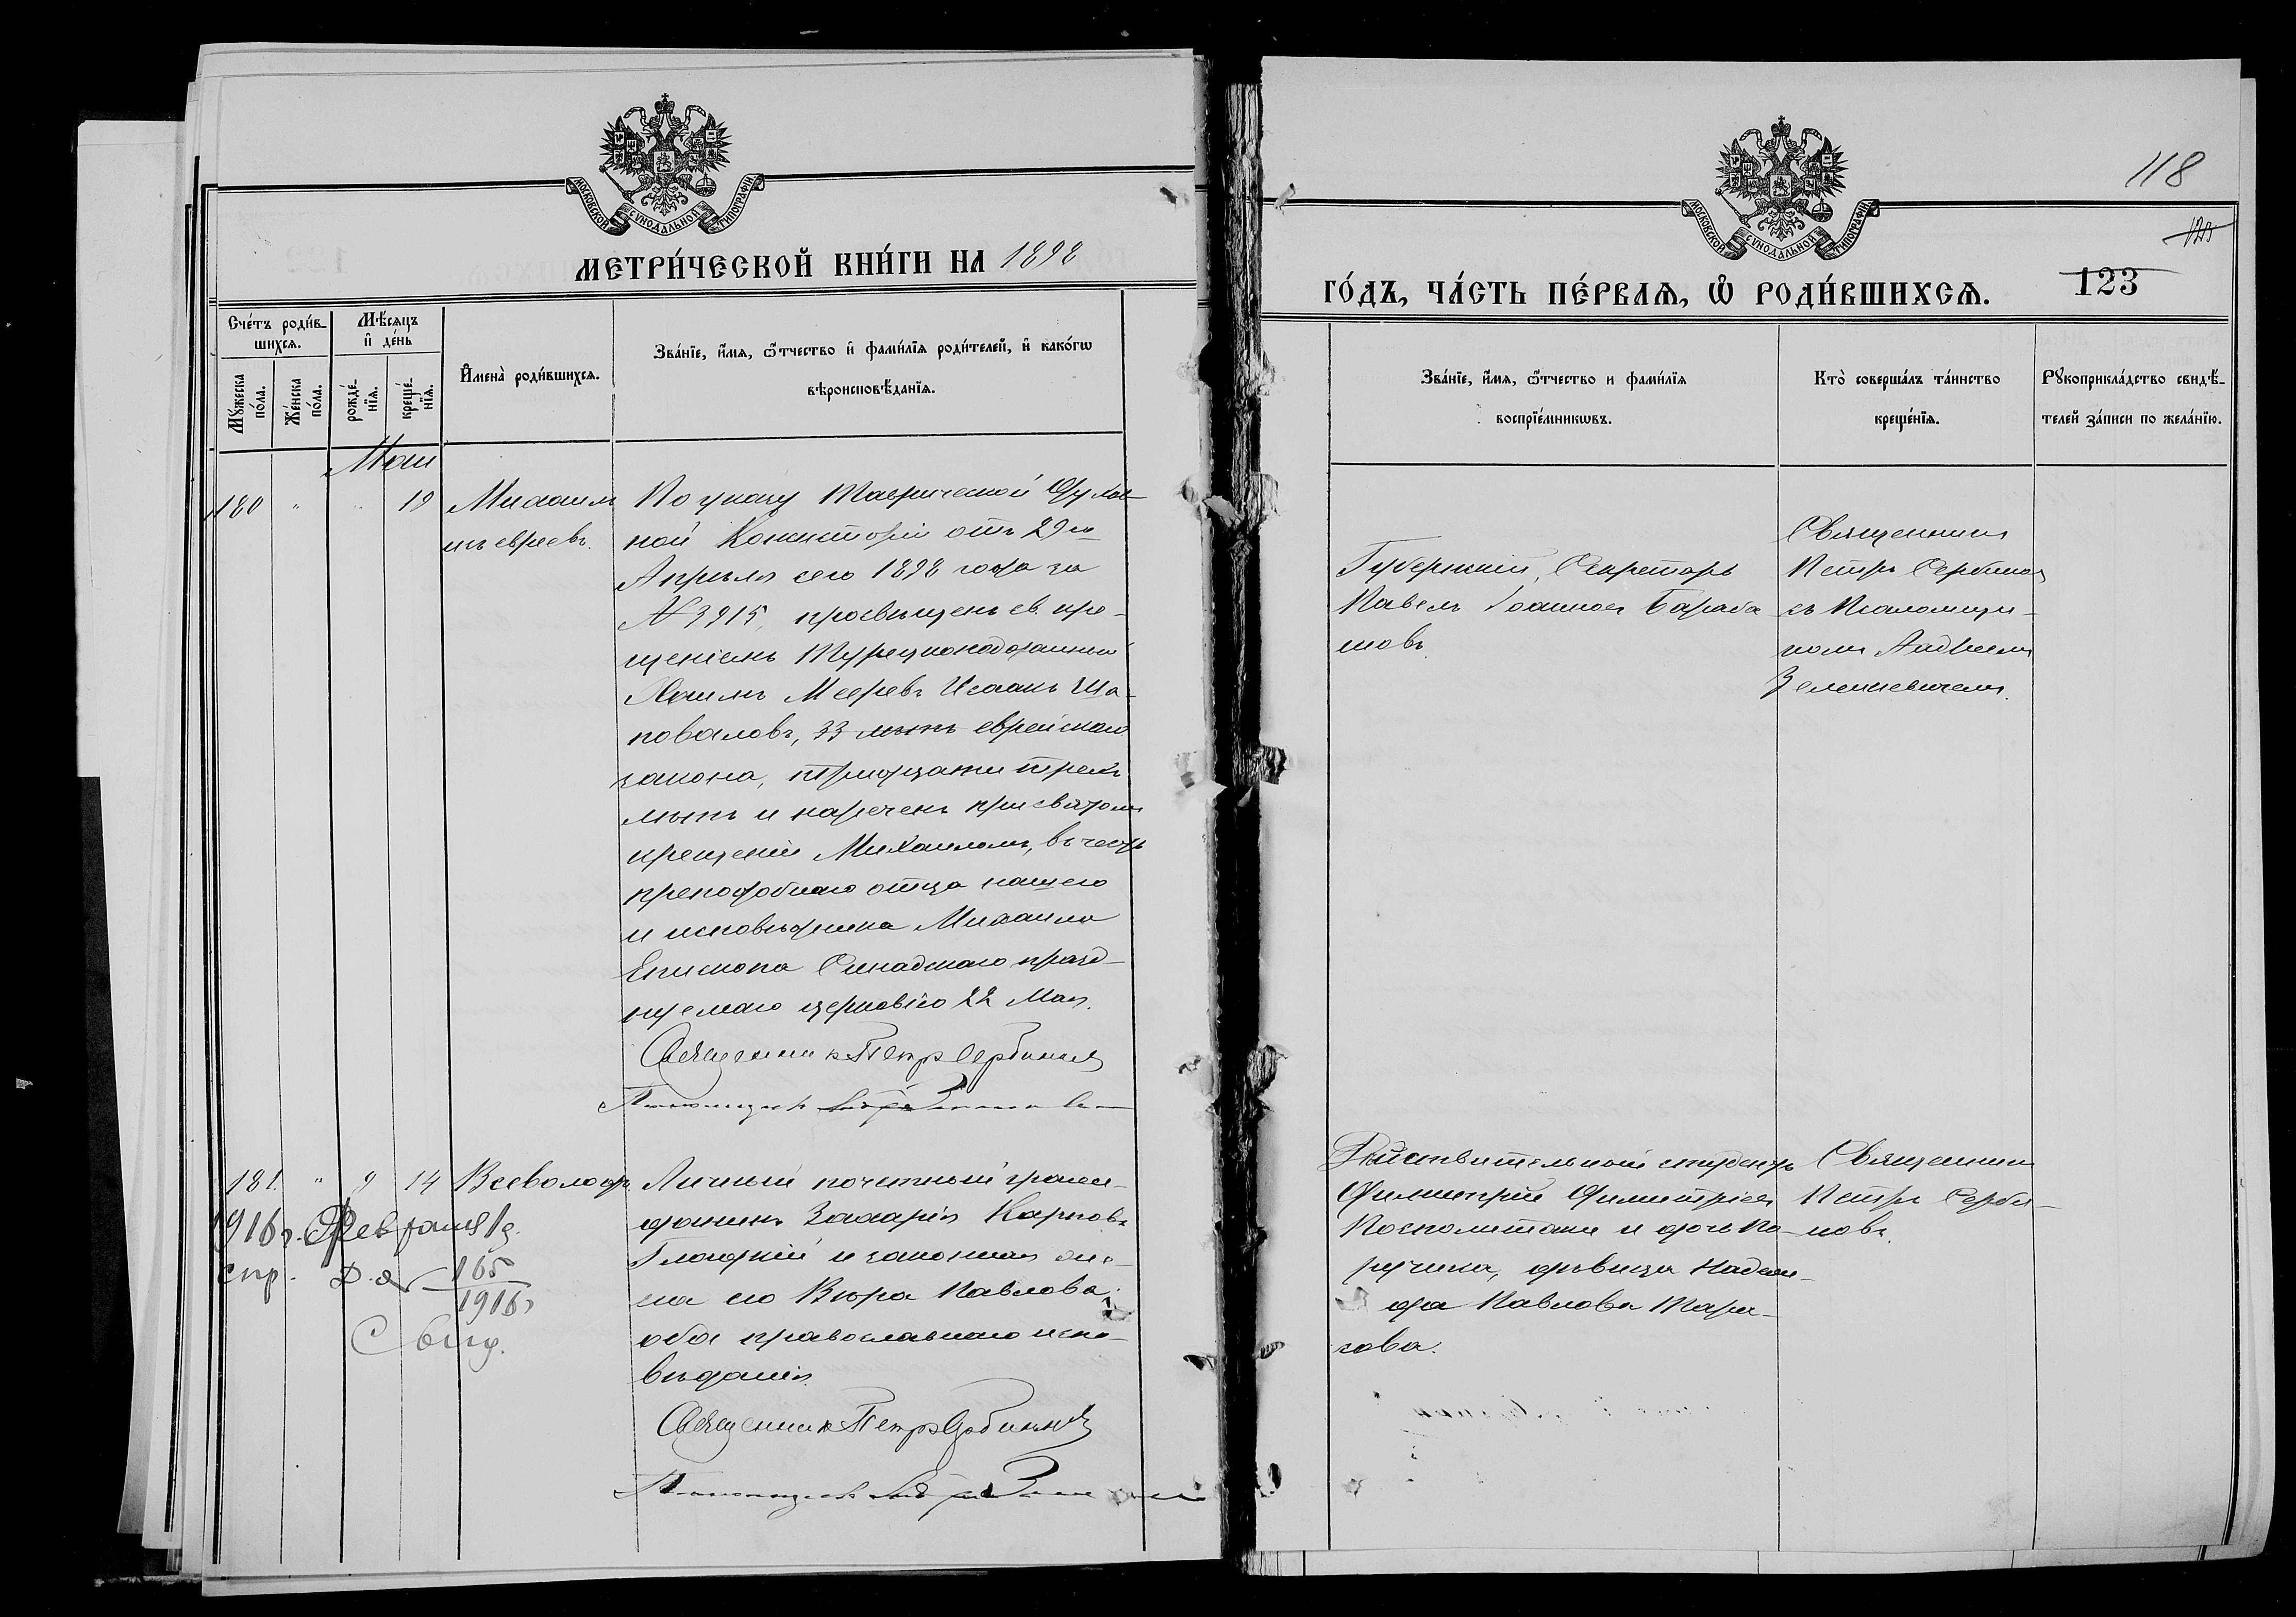 118
МОСКОВСКОЙ СѴНОДАЛЬНОЙ ТИПОГРАФІИ
МОСКОВСКОЙ СѴНОДАЛЬНОЙ ТИПОГРАФІИ
МЕТРИ́ЧЕСКОЙ КНИ́ГИ НА 1898
ГО́ДЪ, ЧА́СТЬ ПЕ́РВАѦ, Ѡ҆ РОДИ́ВШИХСѦ.
123
Сче́тъ роди́в-
шихсѧ.
Мѣ́сѧцъ
и҆ де́нь
Мꙋ́жеска
по́ла.
Же́нска
по́ла.
рожде́-
нїѧ.
креще́-
нїѧ.
И҆мена̀ роди́вшихсѧ.
Зва́нїе, и҆́мѧ, ѻ҆́тчество и҆ фами́лїѧ роди́телей, и҆ како́гѡ
вѣроисповѣ́данїѧ.
Зва́нїе, и҆́мѧ, ѻ҆́тчество и фами́лїѧ
воспрїе́мникѡвъ.
Кто̀ соверша́лъ та́инство
креще́нїѧ.
Рꙋкоприкла́дство свидѣ́-
телей за́писи по жела́нїю.
Маи
180 " " 18 Михаилъ
изъ евреевъ.
По указу Таврической Духов-
ной Консисторіи отъ 29го
Апрѣля сего 1898 года за
№ 3915, просвѣщенъ св. кре-
щеніемъ Турецкоподданный
Хаимъ Мееревъ Исаакъ Ша-
поваловъ, 33 лѣтъ еврейскаго
закона, тридцати трехъ
лѣтъ и нареченъ при святомъ
крещеніи Михаиломъ, въ честь
преподобнаго отца нашего
и исповѣдника Михаила
Епископа Синадскаго празд-
нуемаго церковію 22 Мая.
Священникъ Петръ Сербиновъ
Псаломщикъ
Губернскій Секретарь
Павелъ Іоанновъ Бараба
шовъ.
Священникъ
Петръ Сербиновъ
съ Псаломщи-
комъ Андреемъ
181. " 9 14 Всеволодъ
1916г. Февраля 1 д.
спр.
165
1916
Личный почетный граж-
данинъ Захарія Карповъ
и законная же-
на его Вѣра Павлова;
оба православнаго испо-
вѣданія.
Священникъ Петръ Сербиновъ
Псаломщикъ
Дѣйствительный студентъ
Димитрій Димитріевъ
и дочь По-
ручика, дѣвица Надеж-
да Павлова
Священникъ
Петръ Серби-
новъ.